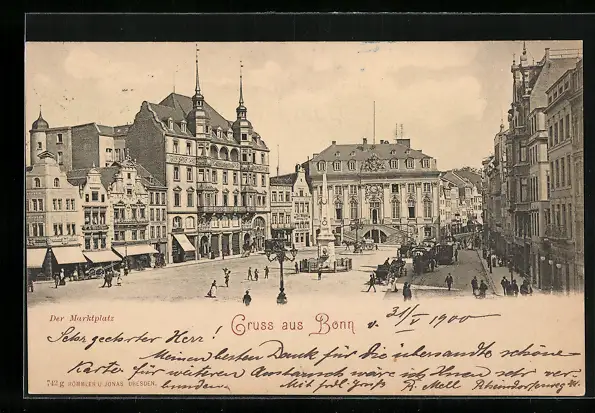 Der Marktplatz
Gruss aus Bonn
v. 31/V 1900
Sehr geehrter Herr!
Meinen besten Dank für die übersandte schöne
Karte für weiteren Austausch wäre ich Ihnen sehr ver-
bunden
Mit frdl. Gruß
A. Mell
742g RÖMMLER U. JONAS, DRESDEN.